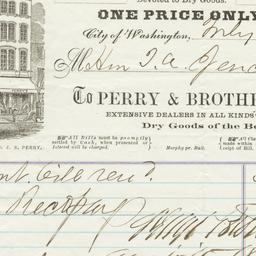 Devoted to Dry Goods.
ONE PRICE ONLY
City of Washington, July
M Hon T. A. Jenc
To PERRY & BROTHE
EXTENSIVE DEALERS IN ALL KINDS
Dry Goods of the Be
All Bills must be promptly
settled by Cash, when presented or
Interest will be charged.
Murphy pr. Balt.
Cla
made within
ceipt of Bill.
J. S. PERRY.
nt bill ren'd.